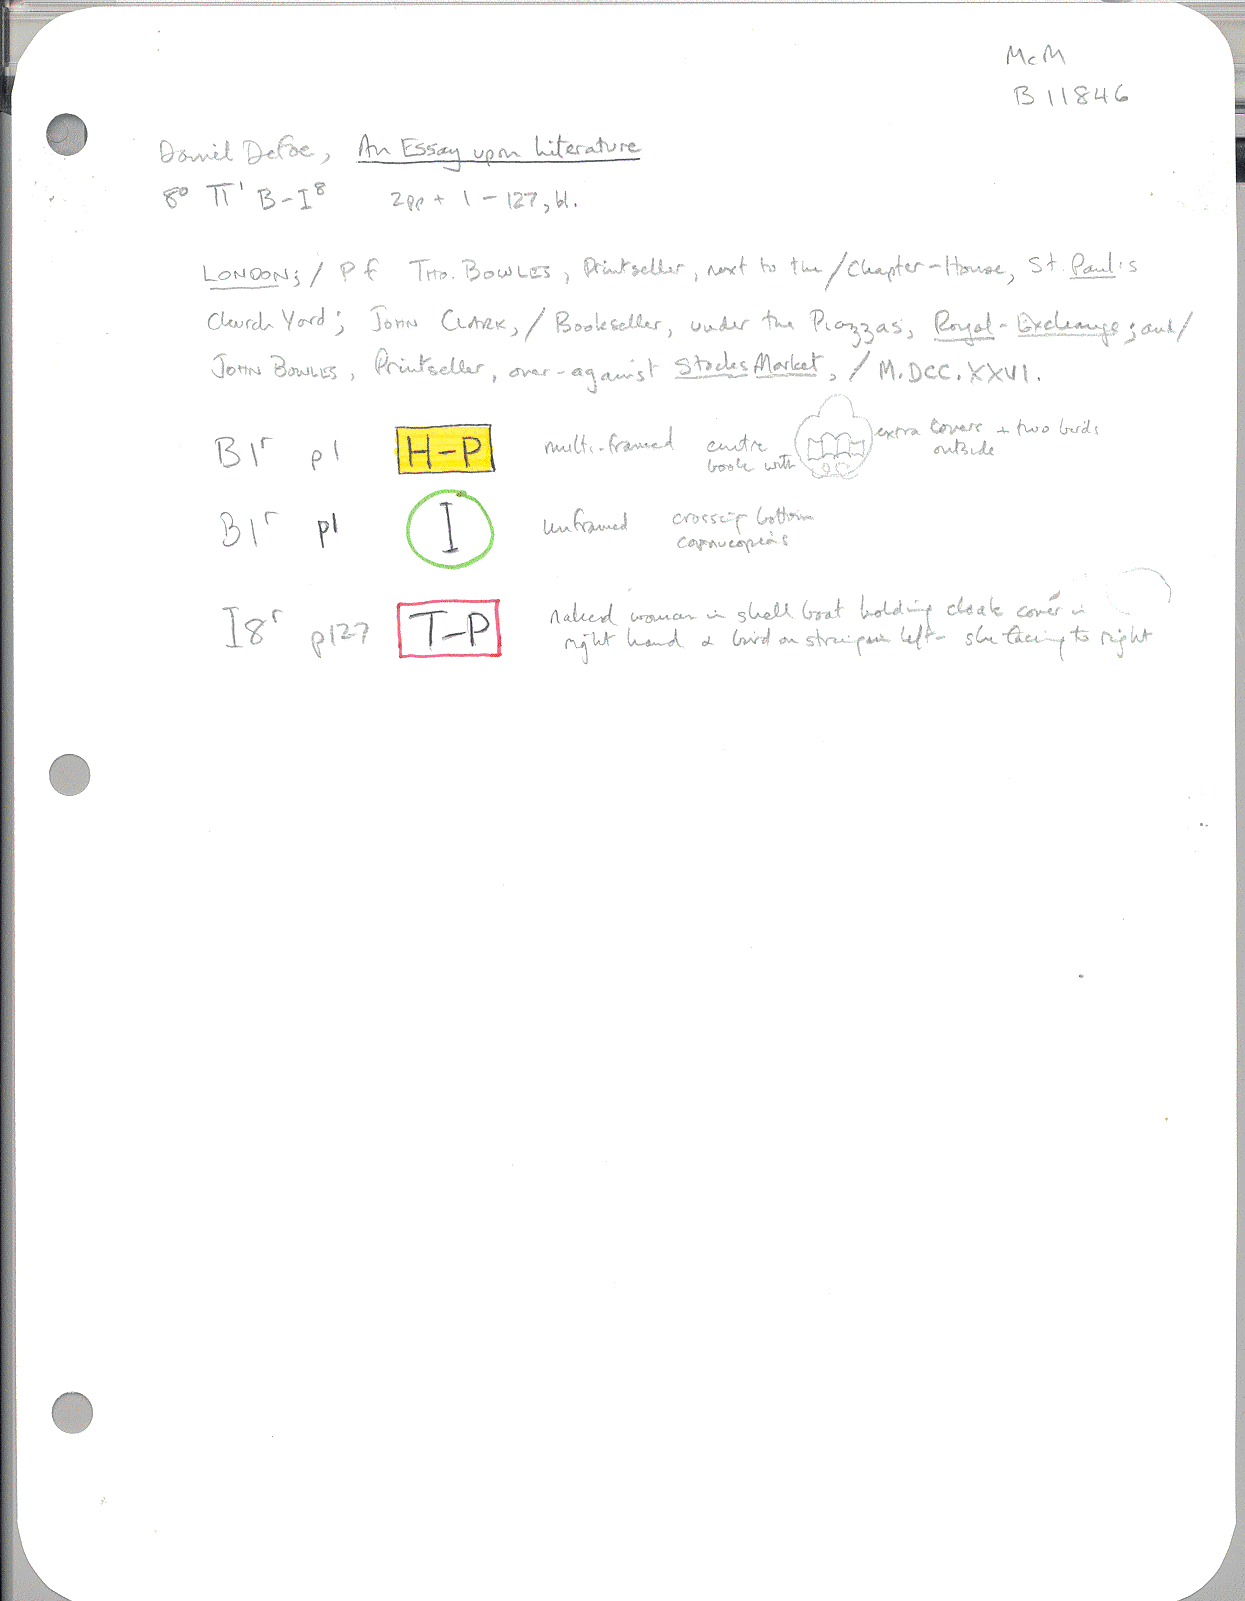 McM
B 11846
Daniel Defoe, An Essay upon Literature
8° π¹ B-I⁸ 2pp + 1 - 127, bl.
LONDON; / P f THO. BOWLES, Printseller, next to the / Chapter-House, St. Paul's
Church Yard; JOHN CLARK, / Bookseller, under the Piazzas, Royal-Exchange; and /
JOHN BOWLES, Printseller, over-against Stocks Market, / M.DCC.XXVI.
B1r p1 H-P multi-framed centre extra covers + two birds
book with outside
B1r p1 I unframed bottom
cornucopias
I8r p127 T-P naked woman in shell boat holding cloak cover in
right hand & bird on left - she facing to right